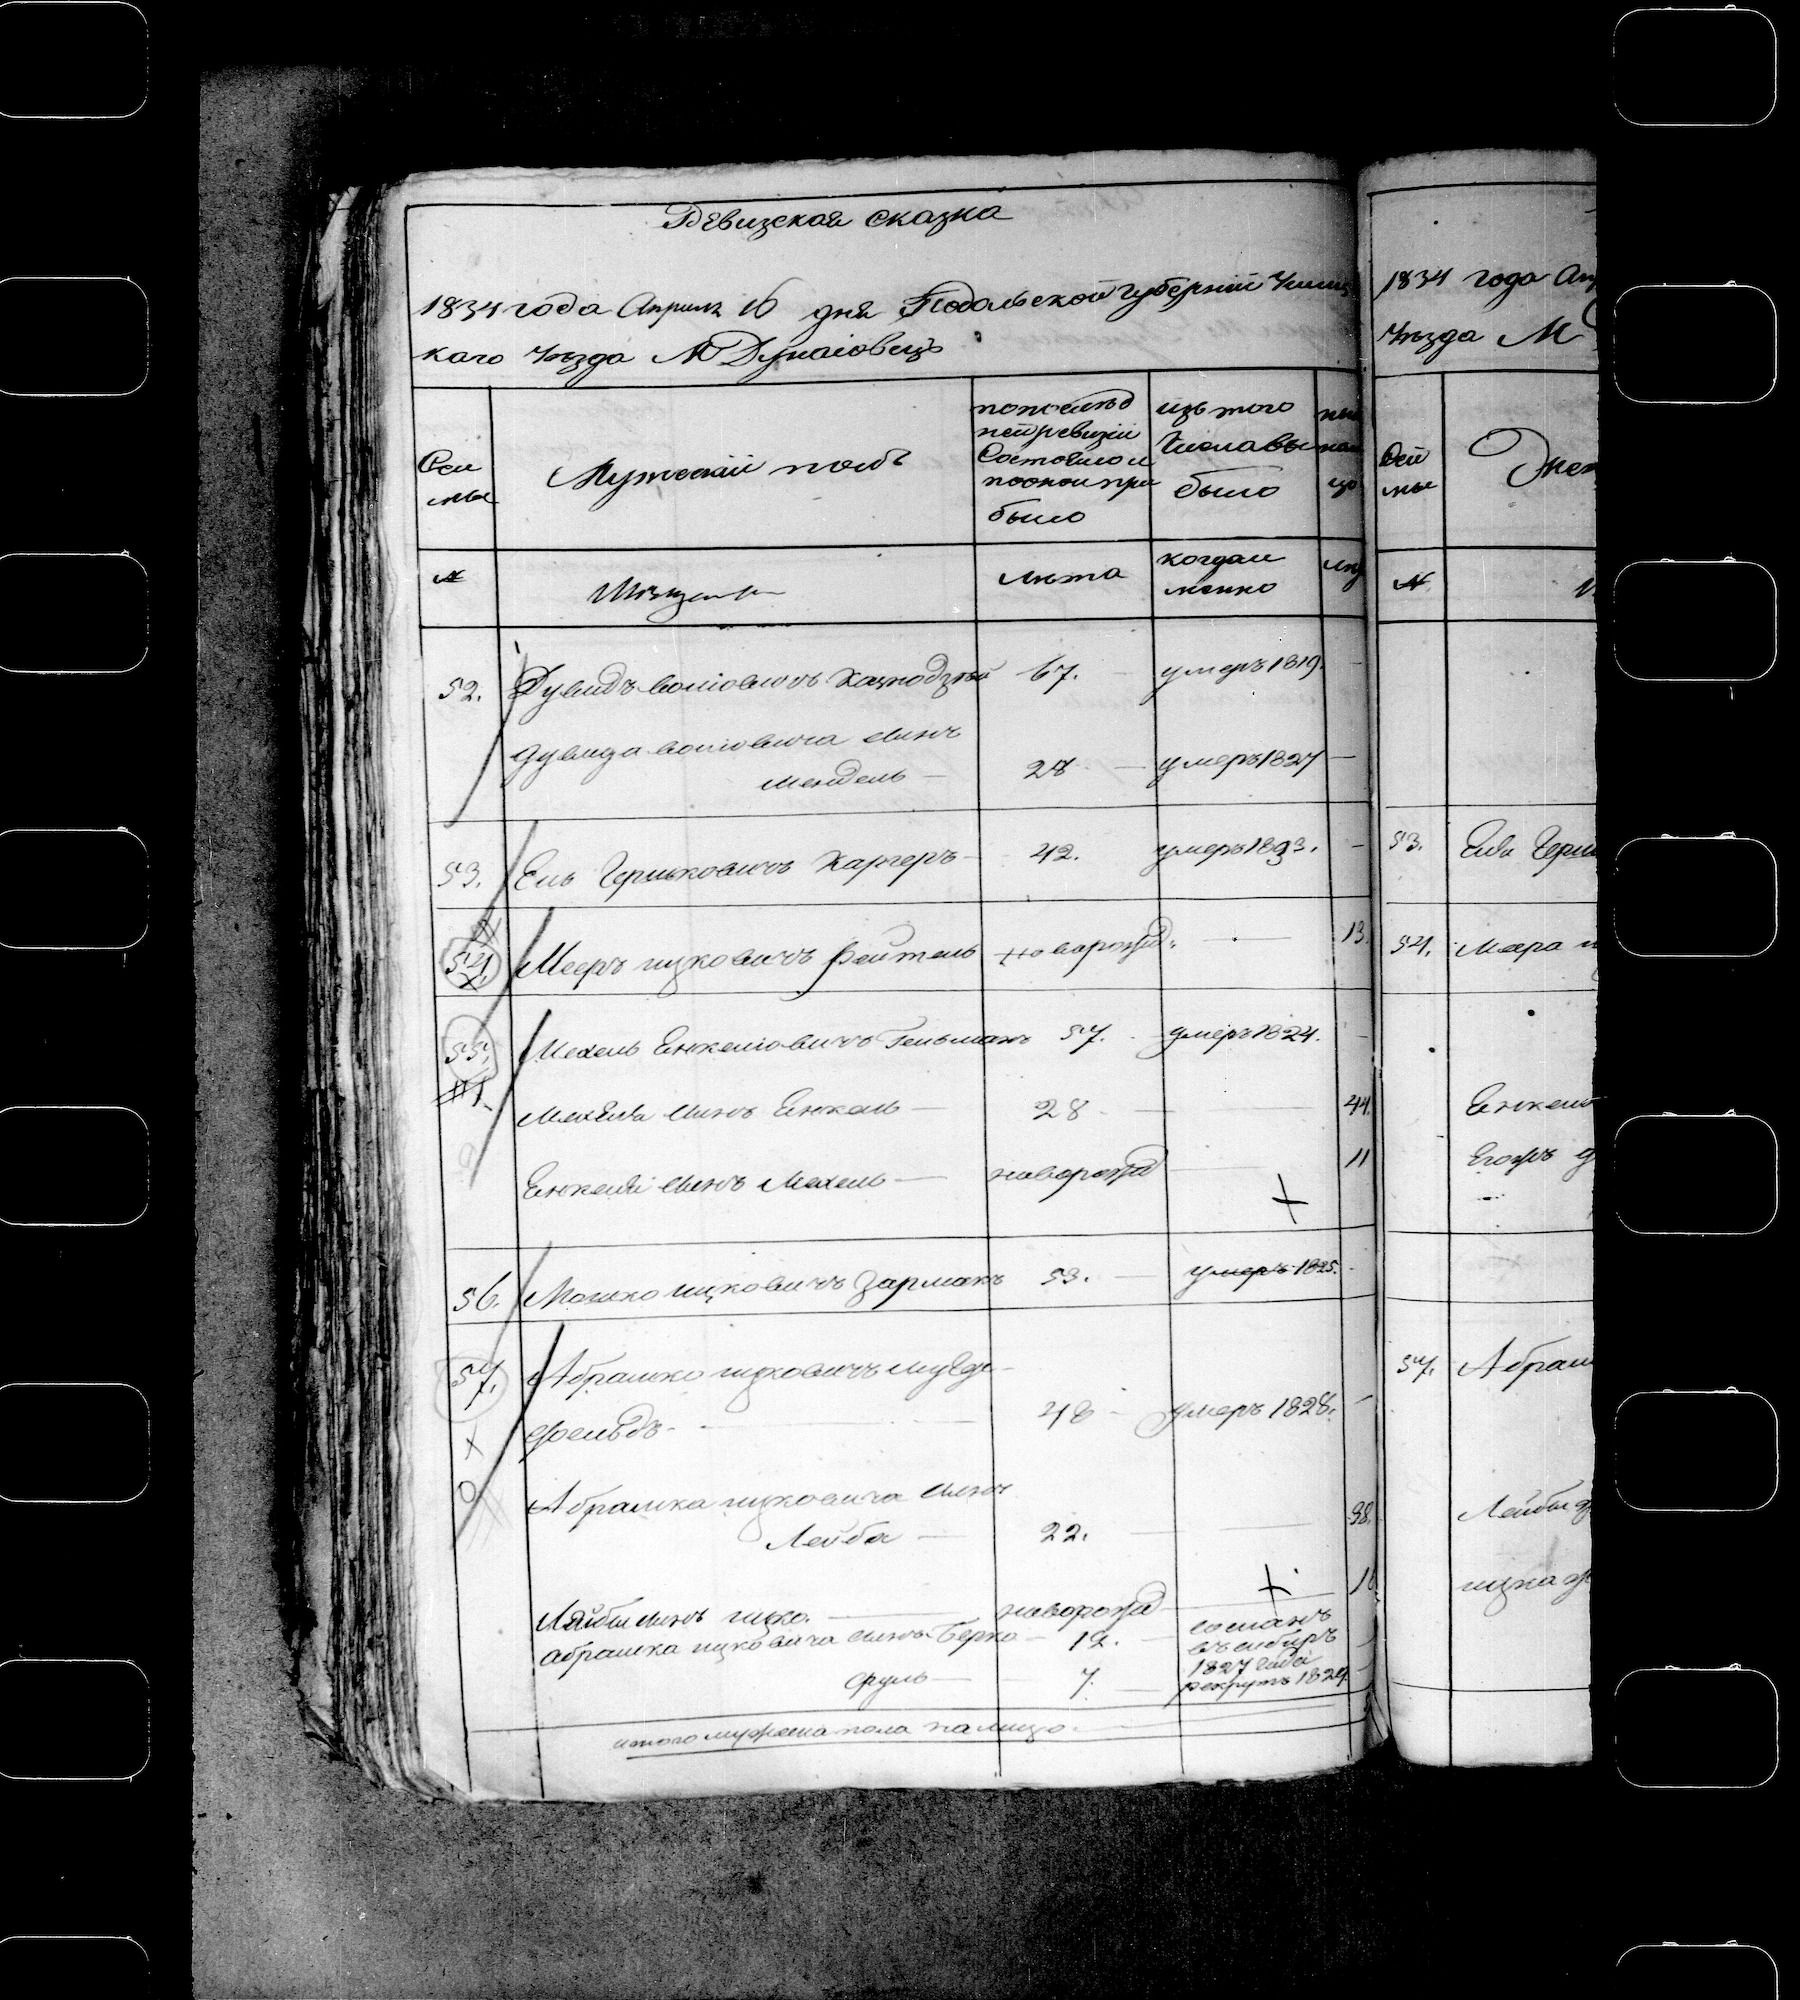 Ревизская сказка
1834 года Апрѣля 16 дня Подольской Губерній Ушиц
каго Уѣзда М Дунаіовецъ
Сем
мьи
Мужескій полъ
попослѣд
ней ревизіи
Состояло и
послѣ при
было
изъ того
Числа вы
было
№
Мѣщане
лѣта
когда и
менно
52. Дувидъ Волiовичъ 67. умеръ 1819.
Дувида Волiовича Сынъ
Мендель — 28 — умеръ 1827 —
53. Ель Гершковичъ Каргеръ — 42. умеръ 1833. —
54. Мееръ Ицковичъ Фейтель новорожд. — 13.
55. Мехель Енкелiовичъ Гельманъ 57. умеръ 1824. —
Мехеля Сынъ Енкель — 28 — 44.
Енкеля Сынъ Мехель — новорожд — 11
56. Мошко Ицковичъ Зарманъ 53. — умеръ 1825. -
57. Абрашко Ицковичъ
фельдъ — 48 — умеръ 1828. —
Абрашка Ицковича Сынъ
Лейба — 22. — 38.
Лейбы Сынъ Ицко. — новорожд — 16
Абрашка Ицковича Сынъ Берко — 12. — сосланъ
въ сибиръ
1827 года
Фуль — 7. — рекрутъ 1829.
итого мужеска пола налицо. —
1834 года Ап
Уѣзда М
Сем
мьи
Жен
№
53. Еля Герш
54. Меера И
Енкеля
57. Абраш
Лейбы
Ицка